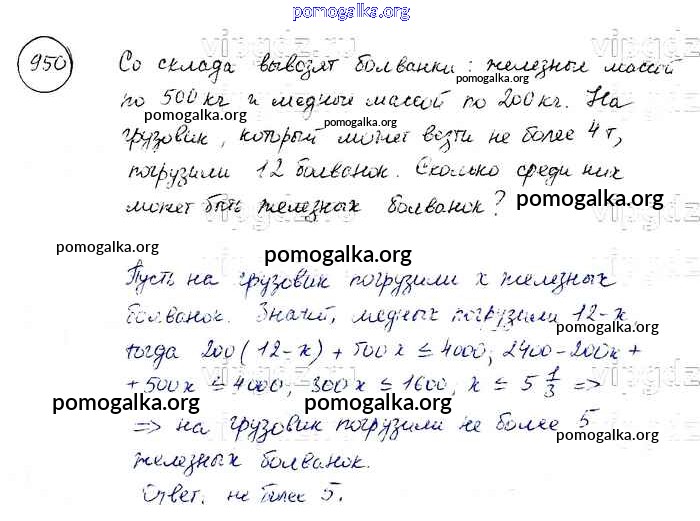 pomogalka.org
950
Со склада вывозят болванки: железные массой
pomogalka.org
по 500 кг и медные массой по 200 кг. На
pomogalka.org
pomogalka.org
грузовик, который может везти не более 4 т,
погрузили 12 болванок. Сколько среди них
может быть железных болванок?
pomogalka.org
pomogalka.org
pomogalka.org
Пусть на грузовик погрузили x железных
болванок. Значит, медных погрузили 12-x,
pomogalka.org
тогда 200(12-x)+500x ≤ 4000; 2400-200x+
+500x ≤ 4000; 300x ≤ 1600, x ≤ 5 1/3 =>
pomogalka.org
pomogalka.org
=> на грузовик погрузили не более 5
pomogalka.org
железных болванок.
Ответ. не более 5.